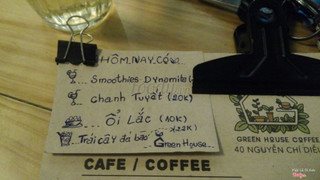 HÔM NAY CÓ
Smoothies Dynamite
Chanh Tuyết (20K)
Ổi Lắc (20K)
Trái cây đá bào
Green House
CAFE / COFFEE
GREEN HOUSE COFFEE
40 NGUYỄN CHÍ DIỂU